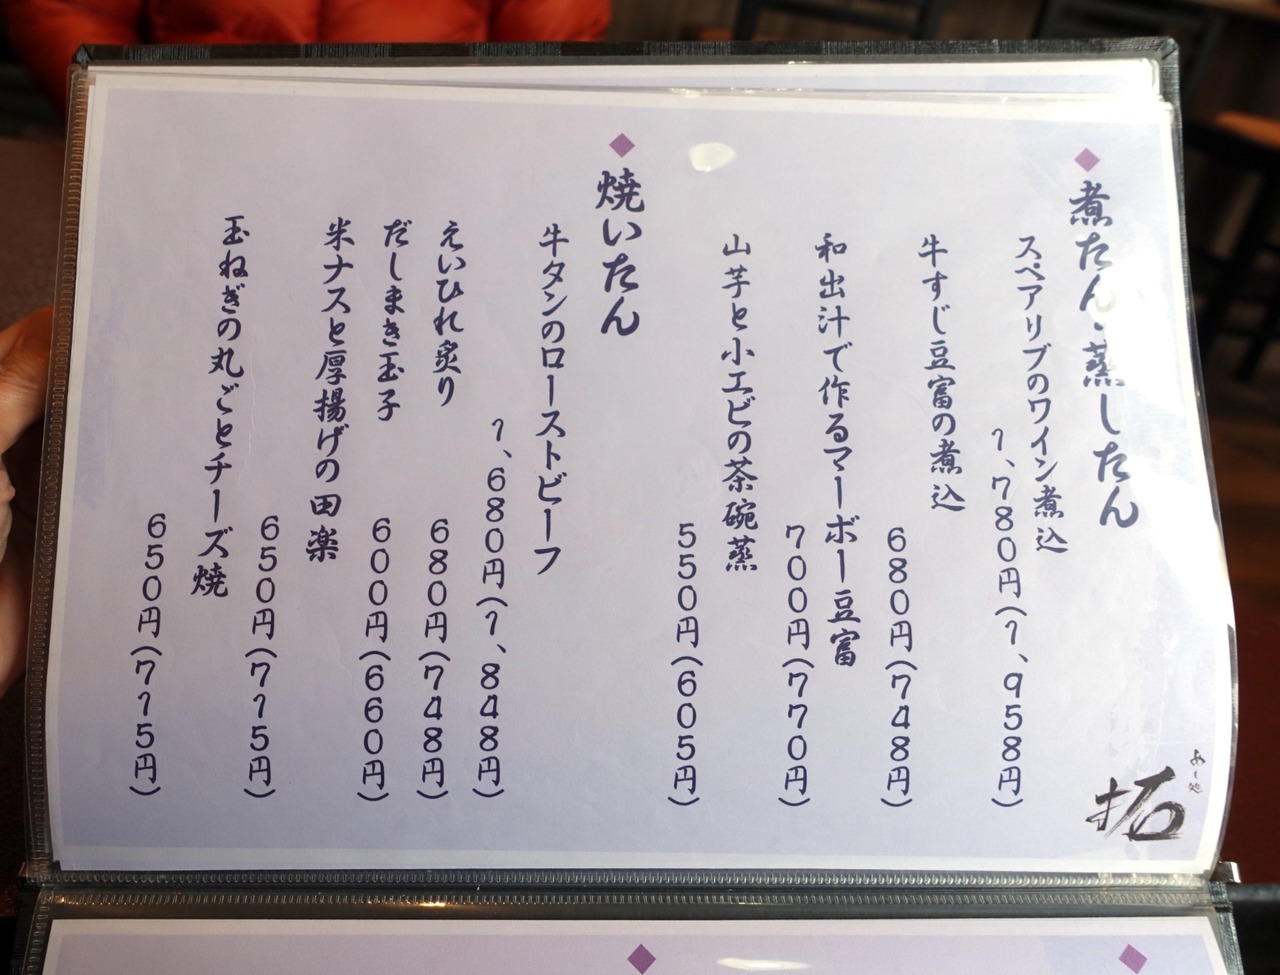 ◆煮たん・蒸したん
スペアリブのワイン煮込
1、780円(1、958円)
牛すじ豆富の煮込
680円(748円)
和出汁で作るマーボー豆富
700円(770円)
山芋と小エビの茶碗蒸
550円(605円)
◆焼いたん
牛タンのローストビーフ
1、680円(1、848円)
えいひれ炙り
680円(748円)
だしまき玉子
600円(660円)
米ナスと厚揚げの田楽
650円(715円)
玉ねぎの丸ごとチーズ焼
650円(715円)
めし処
拓